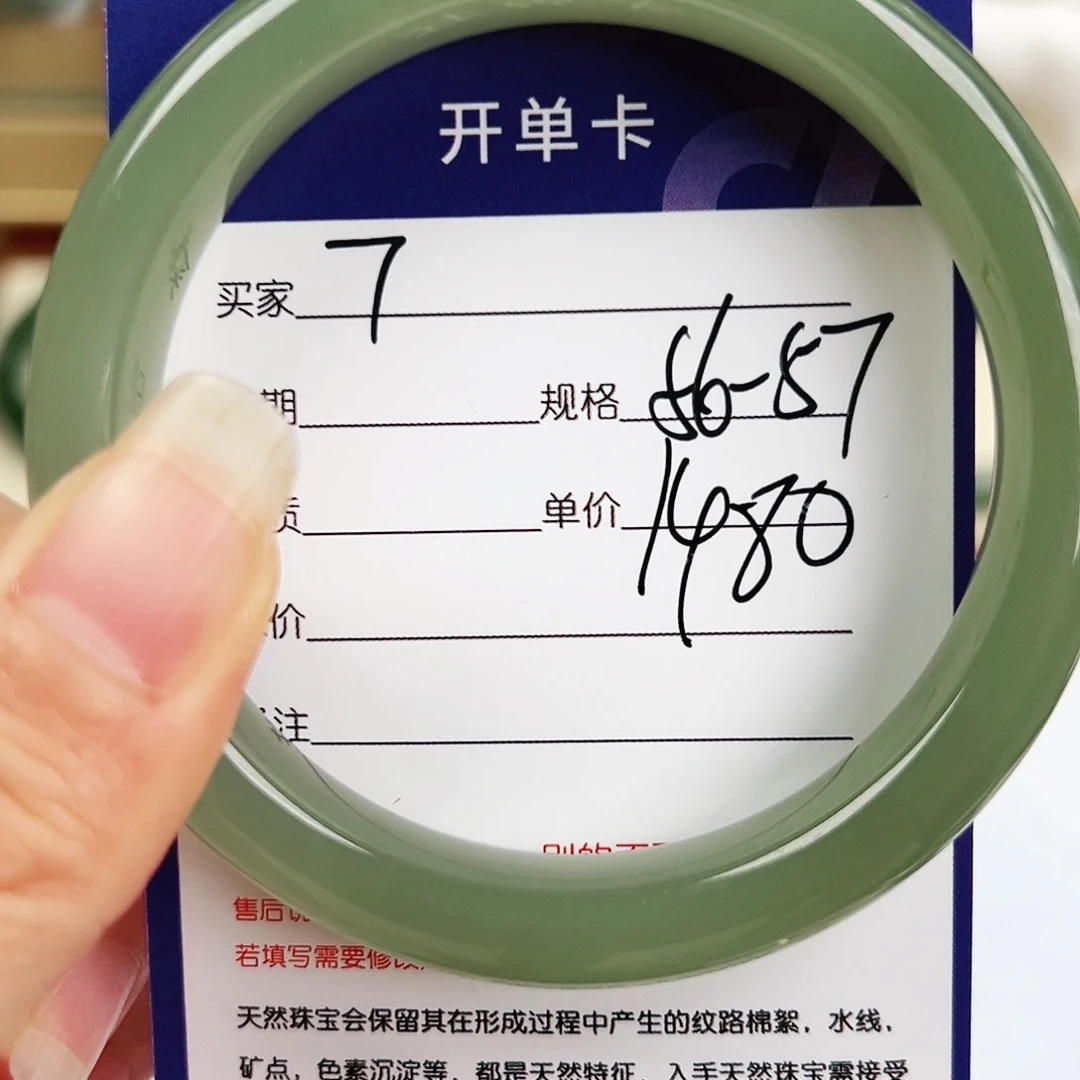 开单卡
买家 7
期 规格 56-57
单价 1480
价
注
售后
若填写需要修改
天然珠宝会保留其在形成过程中产生的纹路棉絮，水线，
矿点，色素沉淀等，都是天然特征，入手天然珠宝需接受